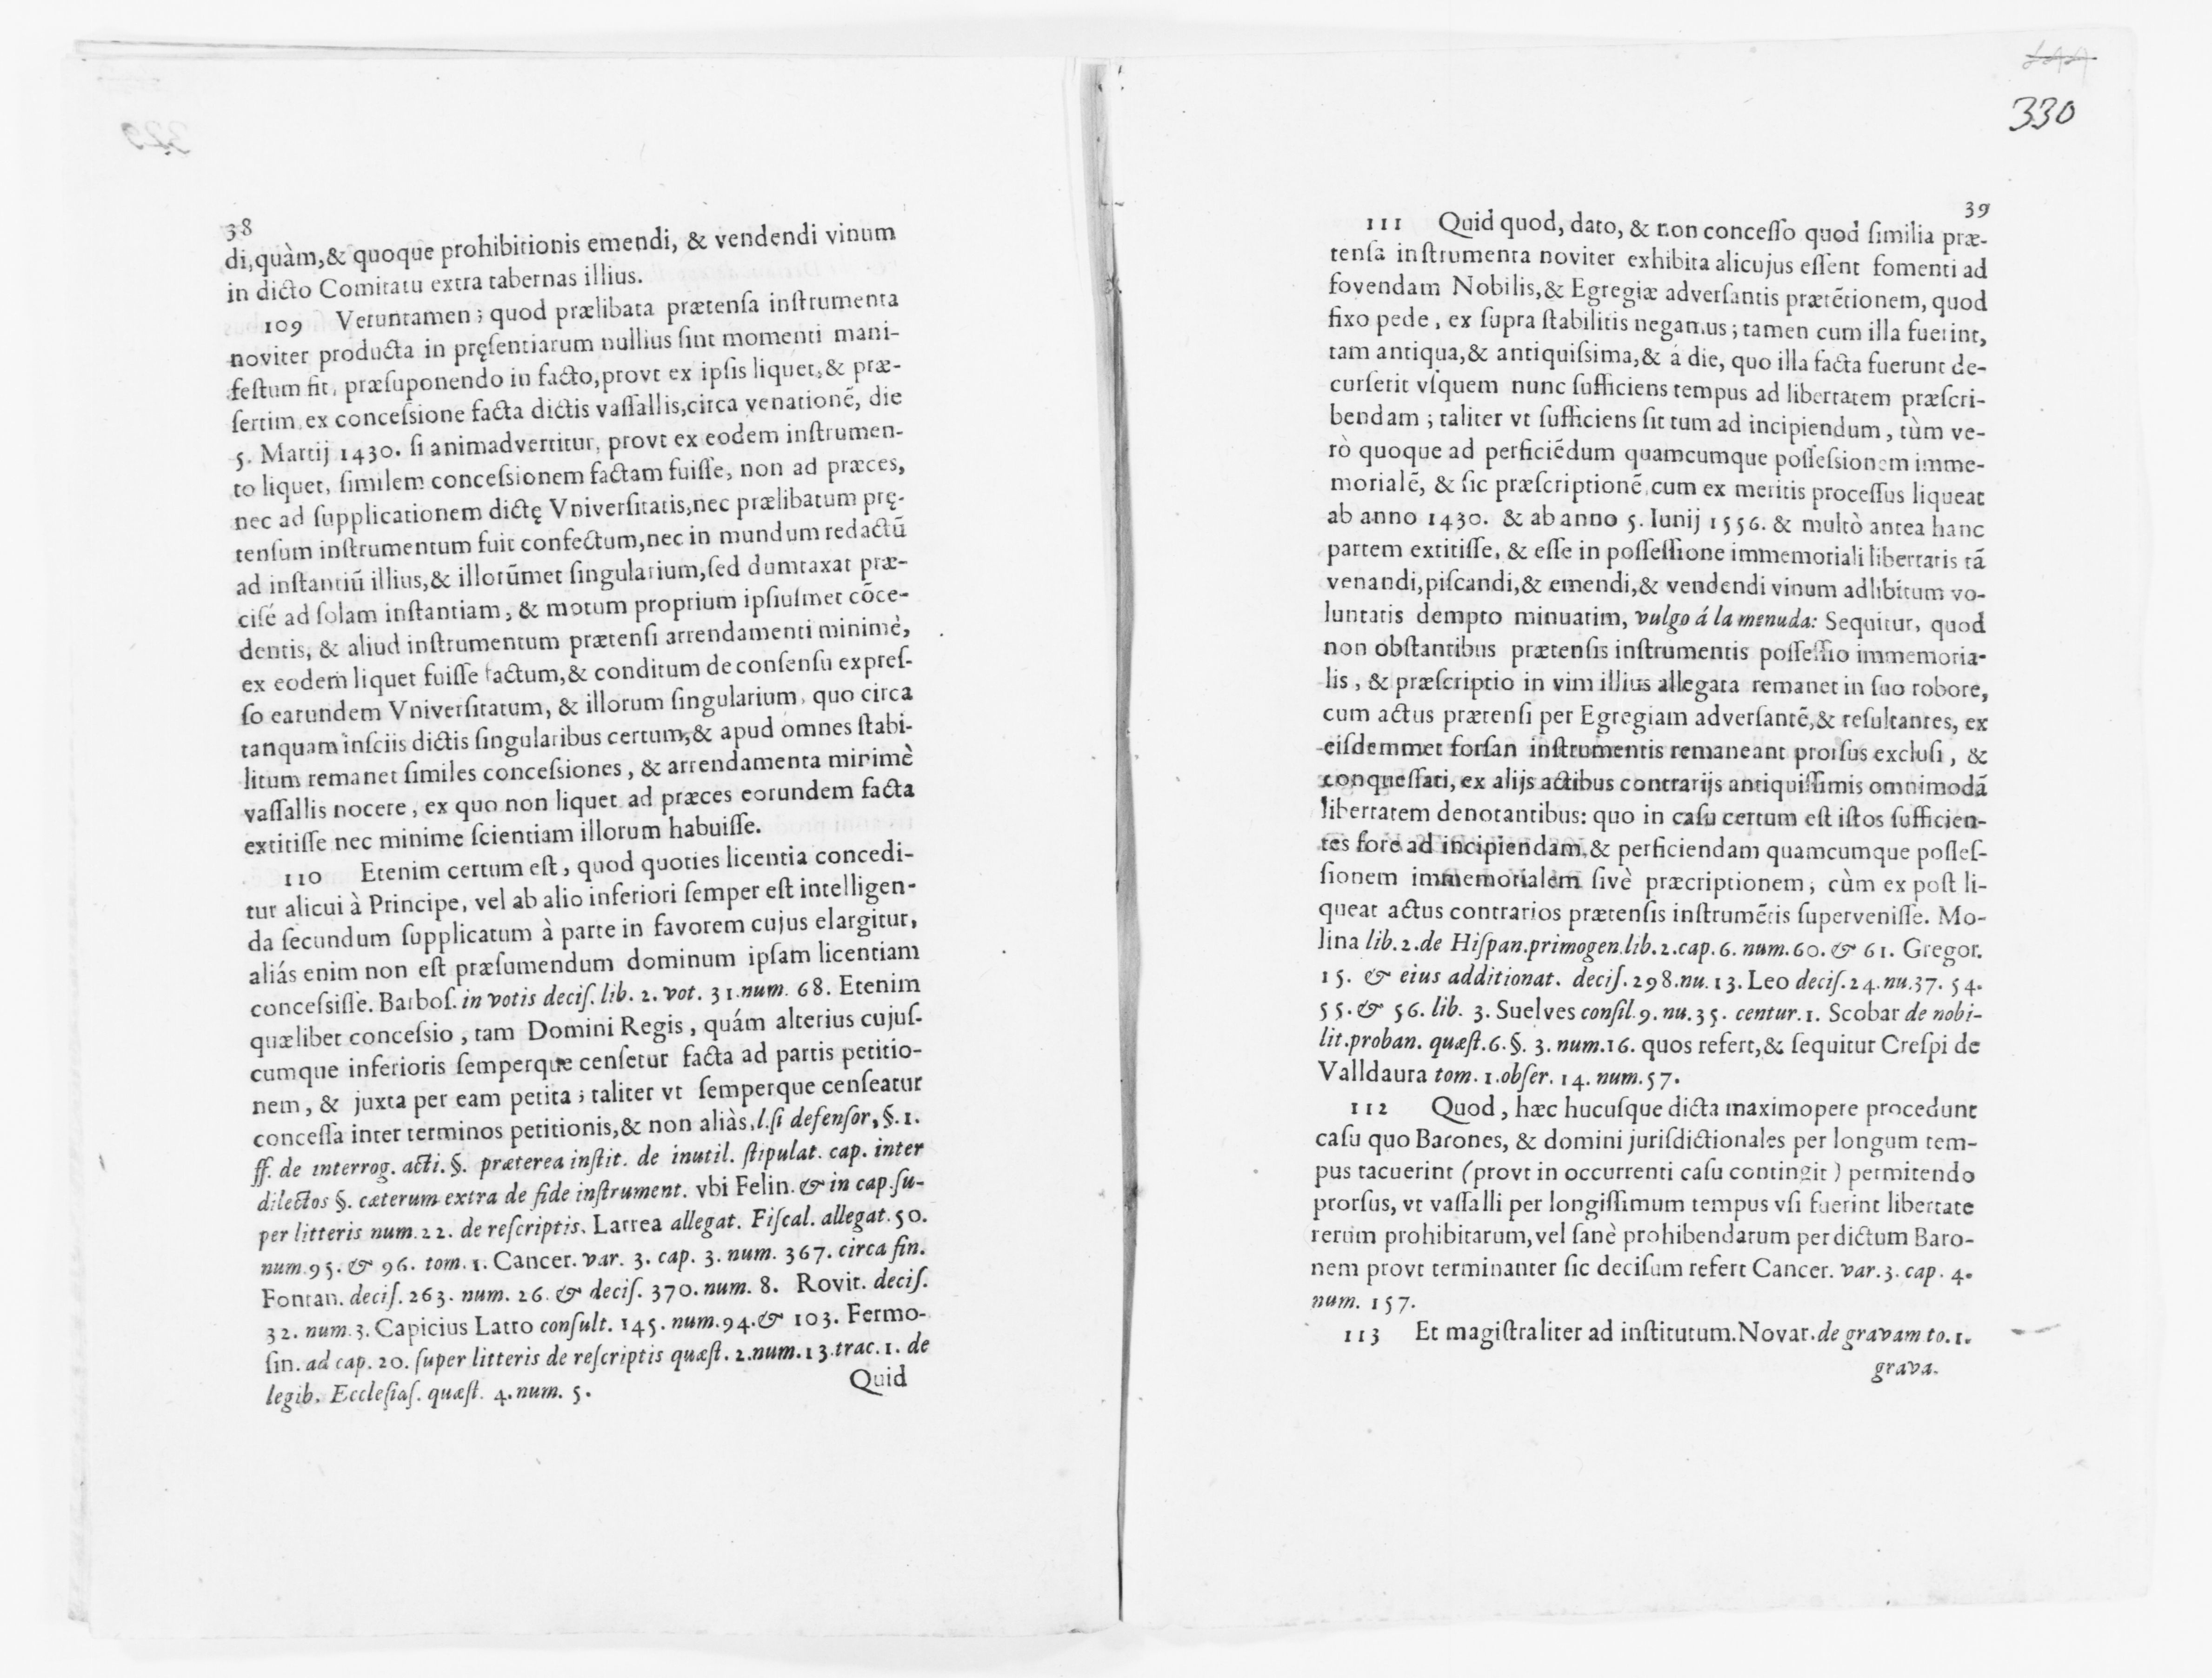 38
di, quàm, & quoque prohibitionis emendi, & vendendi vinum
in dicto Comitatu extra tabernas illius.
109 Veruntamen; quod prælibata prætensa instrumenta
noviter producta in pręsentiarum nullius sint momenti mani-
festum fit, præsuponendo in facto, provt ex ipsis liquet, & præ-
sertim ex concessione facta dictis vassallis, circa venationẽ, die
5. Martij 1430. si animadvertitur, provt ex eodem instrumen-
to liquet, similem concessionem factam fuisse, non ad præces,
nec ad supplicationem dictę Vniversitatis, nec prælibatum prę-
tensum instrumentum fuit confectum, nec in mundum redactũ
ad instantiũ illius, & illorũmet singularium, sed dumtaxat præ-
cisé ad solam instantiam, & motum proprium ipsiusmet cõce-
dentis, & aliud instrumentum prætensi arrendamenti minimè,
ex eodem liquet fuisse factum, & conditum de consensu expres-
so earundem Vniversitatum, & illorum singularium, quo circa
tanquam insciis dictis singularibus certum, & apud omnes stabi-
litum remanet similes concessiones, & arrendamenta minimè
vassallis nocere, ex quo non liquet ad præces eorundem facta
extitisse nec minime scientiam illorum habuisse.
110 Etenim certum est, quod quoties licentia concedi-
tur alicui à Principe, vel ab alio inferiori semper est intelligen-
da secundum supplicatum à parte in favorem cujus elargitur,
aliás enim non est præsumendum dominum ipsam licentiam
concessisse. Barbos. in votis decis. lib. 2. vot. 31. num. 68. Etenim
quælibet concessio, tam Domini Regis, quám alterius cujus-
cumque inferioris semperque censetur facta ad partis petitio-
nem, & juxta per eam petita; taliter vt semperque censeatur
concessa inter terminos petitionis, & non aliàs, l. si defensor, §. 1.
ff. de interrog. acti. §. præterea instit. de inutil. stipulat. cap. inter
dilectos §. cæterum extra de fide instrument. vbi Felin. & in cap. su-
per litteris num. 22. de rescriptis. Larrea allegat. Fiscal. allegat. 50.
num. 95. & 96. tom. 1. Cancer. var. 3. cap. 3. num. 367. circa fin.
Fontan. decis. 263. num. 26. & decis. 370. num. 8. Rovit. decis.
32. num. 3. Capicius Latro consult. 145. num. 94. & 103. Fermo-
sin. ad cap. 20. super litteris de rescriptis quæst. 2. num. 13. trac. 1. de
legib. Ecclesias. quæst. 4. num. 5.
Quid
330
39
111 Quid quod, dato, & non concesso quod similia præ-
tensa instrumenta noviter exhibita alicujus essent fomenti ad
fovendam Nobilis, & Egregiæ adversantis prætẽtionem, quod
fixo pede, ex supra stabilitis negamus; tamen cum illa fuerint,
tam antiqua, & antiquissima, & á die, quo illa facta fuerunt de-
curserit vsquem nunc sufficiens tempus ad libertatem præscri-
bendam; taliter vt sufficiens sit tum ad incipiendum, tùm ve-
rò quoque ad perficiẽdum quamcumque possessionem imme-
morialẽ, & sic præscriptionẽ, cum ex meritis processus liqueat
ab anno 1430. & ab anno 5. Iunij 1556. & multò antea hanc
partem extitisse, & esse in possessione immemoriali libertatis tã
venandi, piscandi, & emendi, & vendendi vinum adlibitum vo-
luntatis dempto minuatim, vulgo á la menuda: Sequitur, quod
non obstantibus prætensis instrumentis possessio immemoria-
lis, & præscriptio in vim illius allegata remanet in suo robore,
cum actus prætensi per Egregiam adversantẽ, & resultantes, ex
eisdemmet forsan instrumentis remaneant prorsus exclusi, &
conquessati, ex alijs actibus contrarijs antiquissimis omnimodã
libertatem denotantibus: quo in casu certum est istos sufficien-
tes fore ad incipiendam, & perficiendam quamcumque posses-
sionem immemorialem sivè præcriptionem; cùm ex post li-
queat actus contrarios prætensis instrumẽtis supervenisse. Mo-
lina lib. 2. de Hispan. primogen. lib. 2. cap. 6. num. 60. & 61. Gregor.
15. & eius additionat. decis. 298. nu. 13. Leo decis. 24. nu. 37. 54.
55. & 56. lib. 3. Suelves consil. 9. nu. 35. centur. 1. Scobar de nobi-
lit. proban. quæst. 6. §. 3. num. 16. quos refert, & sequitur Crespi de
Valldaura tom. 1. obser. 14. num. 57.
112 Quod, hæc hucusque dicta maximopere procedunt
casu quo Barones, & domini jurisdictionales per longum tem-
pus tacuerint (provt in occurrenti casu contingit) permitendo
prorsus, vt vassalli per longissimum tempus vsi fuerint libertate
rerum prohibitarum, vel sanè prohibendarum per dictum Baro-
nem provt terminanter sic decisum refert Cancer. var. 3. cap. 4.
num. 157.
113 Et magistraliter ad institutum. Novar. de gravam. to. 1.
grava.